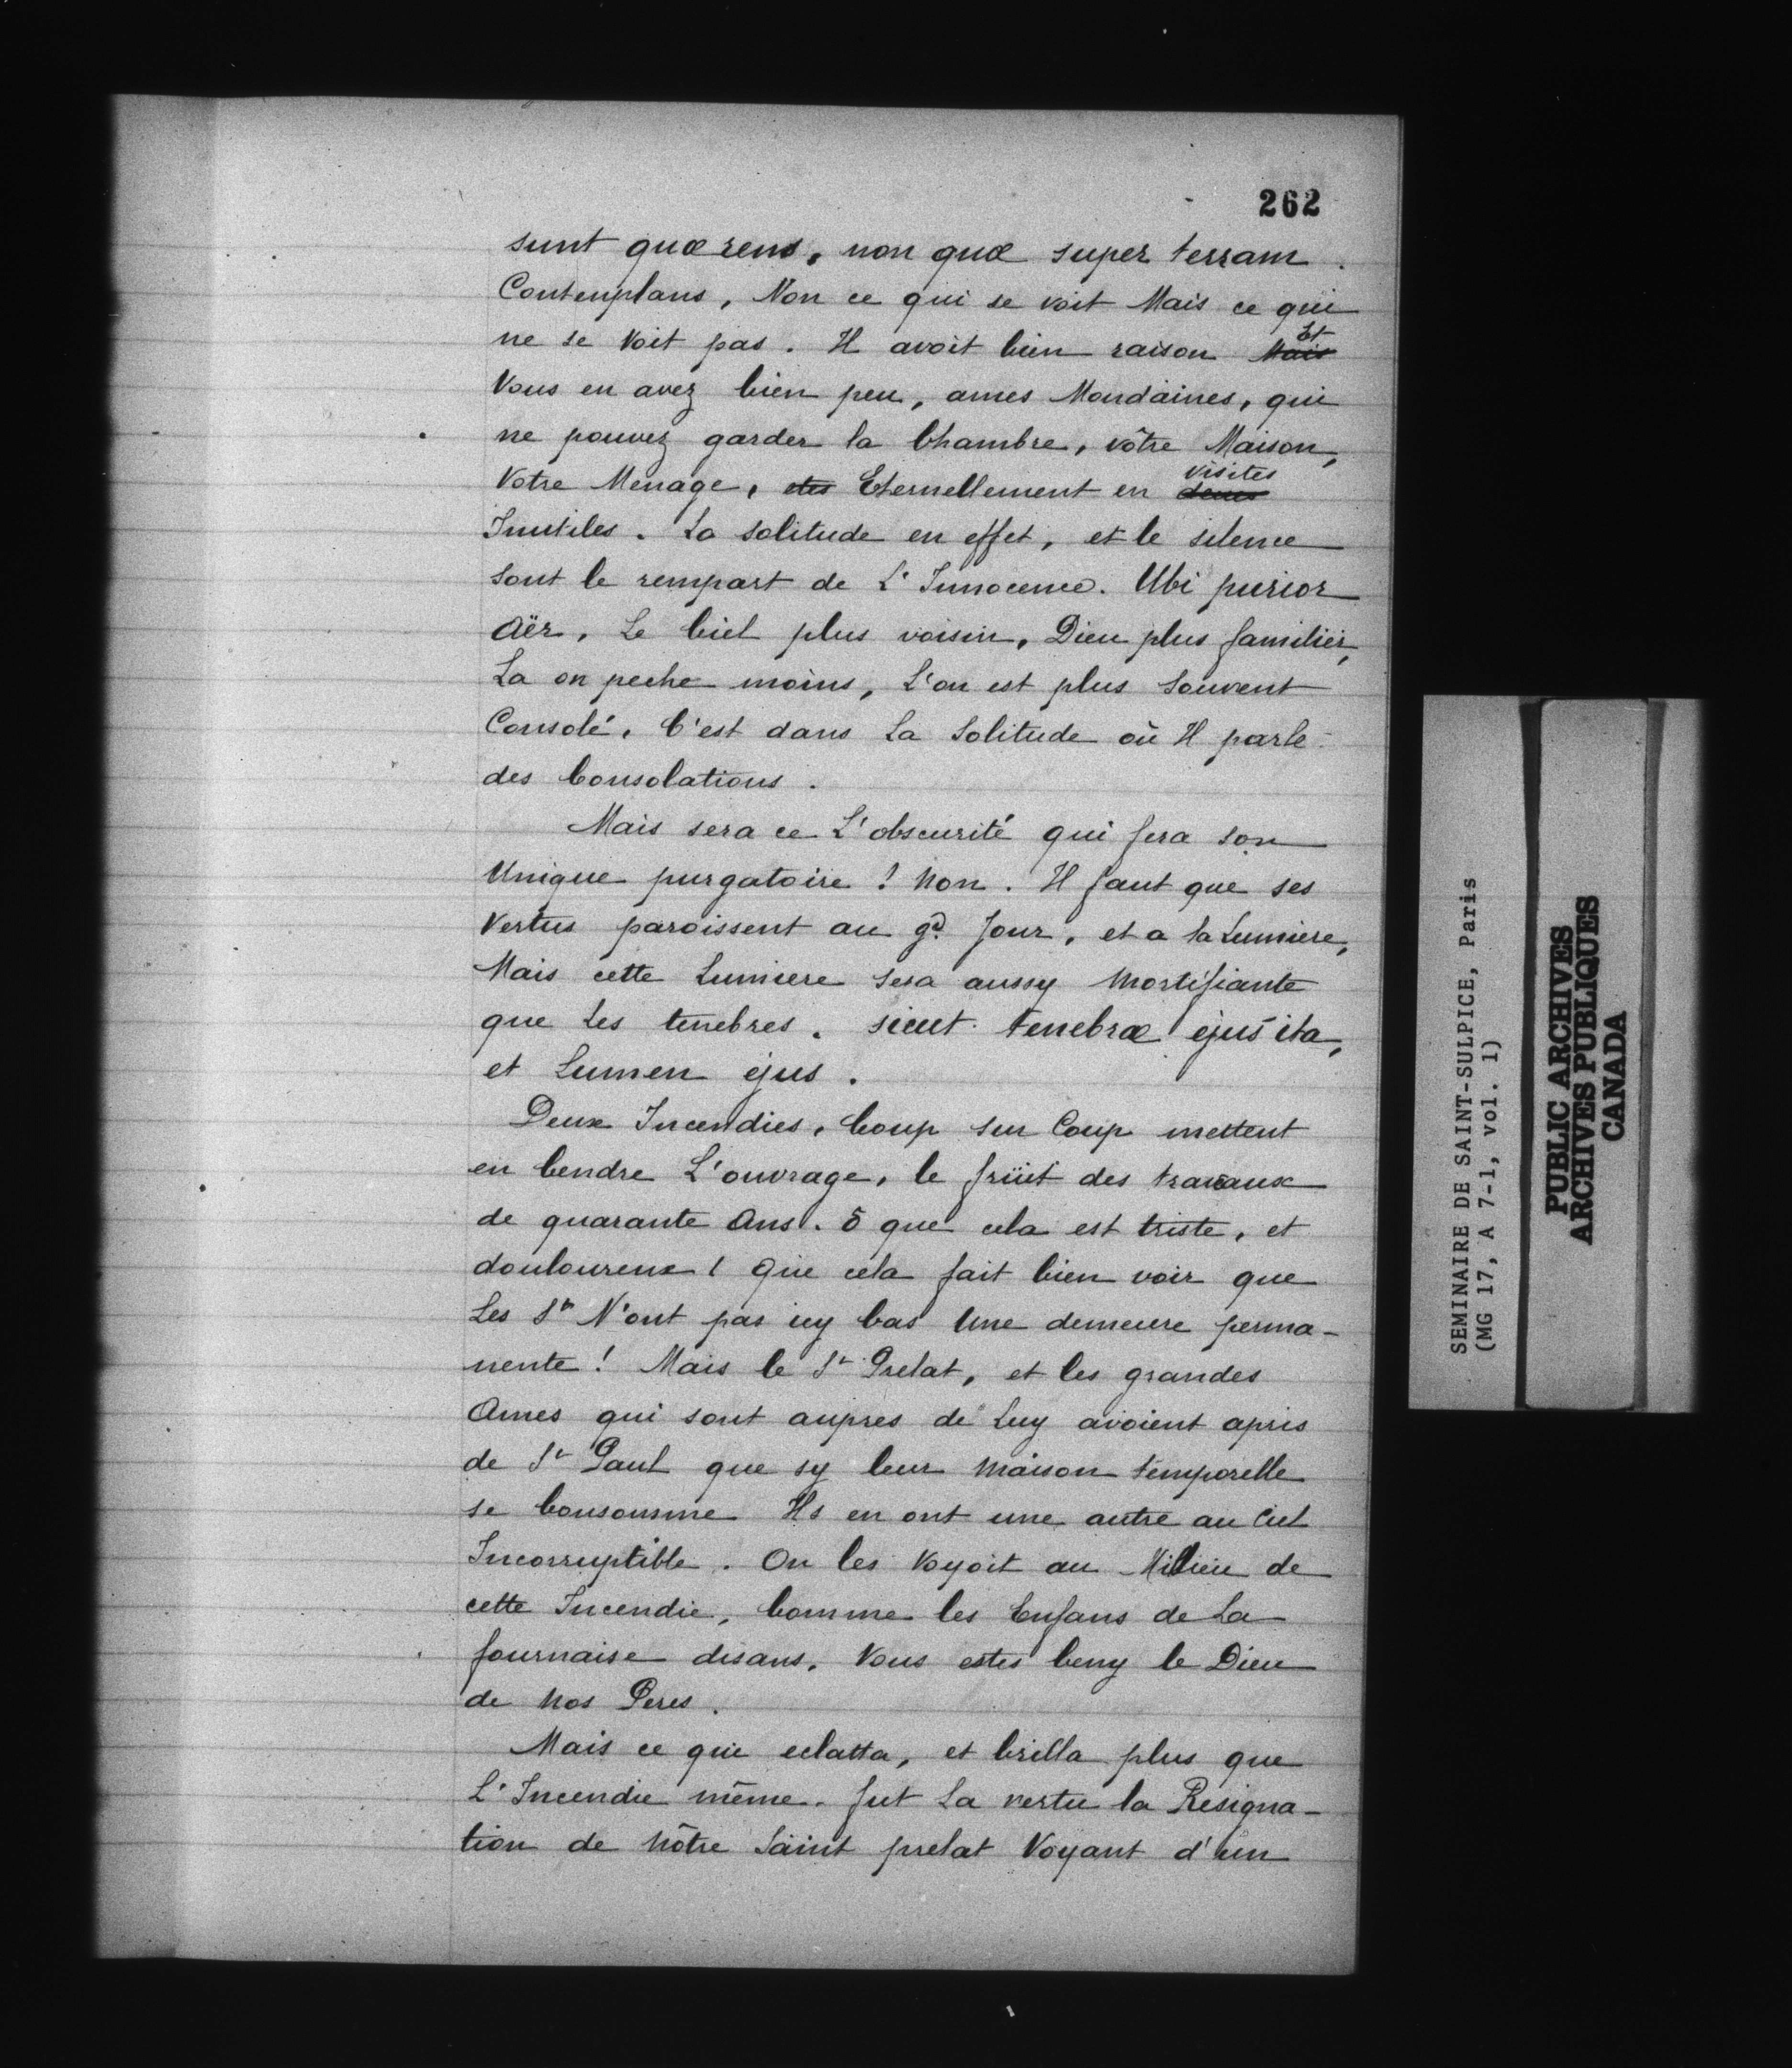 262
sunt quærens, non quæ super terram.
Contenplans, Non ce qui se voit Mais ce qui
ne se Voit pas. Il avoit bien raison ~~Mais~~ Et
Vous en avez bien peu, ames Mondaines, qui
ne pouvez garder la Chambre, vôtre Maison,
Votre Menage, ~~etes~~ Eternellement en visites
Inutiles. La solitude en effet, et le silence
sont le rempart de L'Innocence. Ubi purior
Aër, Le Ciel plus voisin, Dieu plus familier,
La on peche moins, L'on est plus Souvent
Consolé, C'est dans La Solitude où Il parle
des Consolations.
Mais sera ce L'obscurité qui fera son
Unique purgatoire! Non. Il faut que ses
Vertus paroissent au gd. Jour, et a la Lumiere,
Mais cette Lumiere sera aussy Mortifiante
que Les tenebres. sicut tenebræ ejus ita,
et Lumen ejus.
Deux Incendies, Coup sur Coup mettent
en Cendre L'ouvrage, le früit des travaux
de quarante Ans. ô que cela est triste, et
douloureux! Que cela fait bien voir que
Les Sts N'ont pas icy bas Une demeure perma-
nente! Mais le St Prelat, et les grandes
Ames qui sont aupres de Luy avoient apris
de St Paul que sy leur Maison temporelle
se Consomme Ils en ont une autre au Ciel
Incorruptible. On les Voyoit au Milieu de
cette Incendie, Comme les Enfans de La
fournaise disans, Vous estes beny le Dieu
de Nos Peres.
Mais ce qui eclatta, et brilla plus que
L'Incendie même. fut La vertu la Resigna-
tion de Nôtre Saint prelat Voyant d'un
SEMINAIRE DE SAINT-SULPICE, Paris
(MG 17, A 7-1, vol. 1)
PUBLIC ARCHIVES
ARCHIVES PUBLIQUES
CANADA